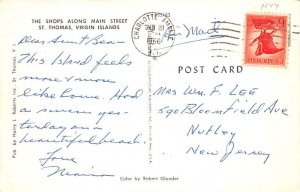 THE SHOPS ALONG MAIN STREET
ST. THOMAS, VIRGIN ISLANDS
Dear Aunt Bea –
This Island feels
more & more
like home. Had
a swim yes-
terday on a
beautiful beach.
Love
CHARLOTTE
1966
Air Mail
POST CARD
Mrs Wm. F. LEE
590 Bloomfield Ave
Nutley
New Jersey
Color by Robert Glander